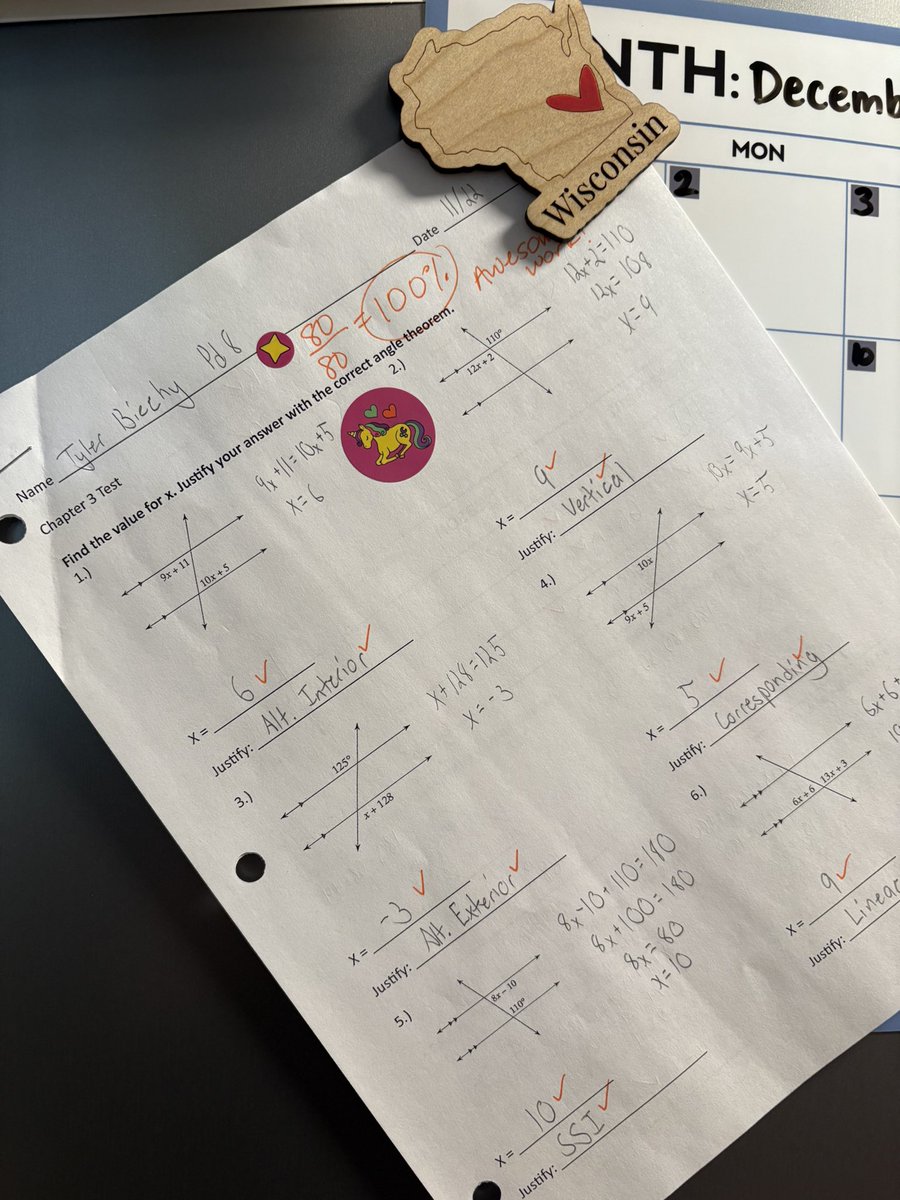 NTH: Decemb
MON
2
3
10
Wisconsin
Date 11/22
80/80 = 100%
Awesome work!
Name Tyler Biechy Pd 8
Chapter 3 Test
Find the value for x. Justify your answer with the correct angle theorem.
1.)
9x + 11
10x + 5
9x+11=10x+5
x=6
x = 6
Justify: Alt. Interior
2.)
110°
12x + 2
12x+2=110
12x=108
x=9
x = 9
Justify: Vertical
3.)
125°
x + 128
x+128=125
x=-3
x = -3
Justify: Alt. Exterior
4.)
10x
9x + 5
10x=9x+5
x=5
x = 5
Justify: Corresponding
5.)
8x – 10
110°
8x-10+110=180
8x+100=180
8x=80
x=10
x = 10
Justify: SSI
6.)
6x + 6
13x + 3
6x+6+
x = 9
Justify: Linear